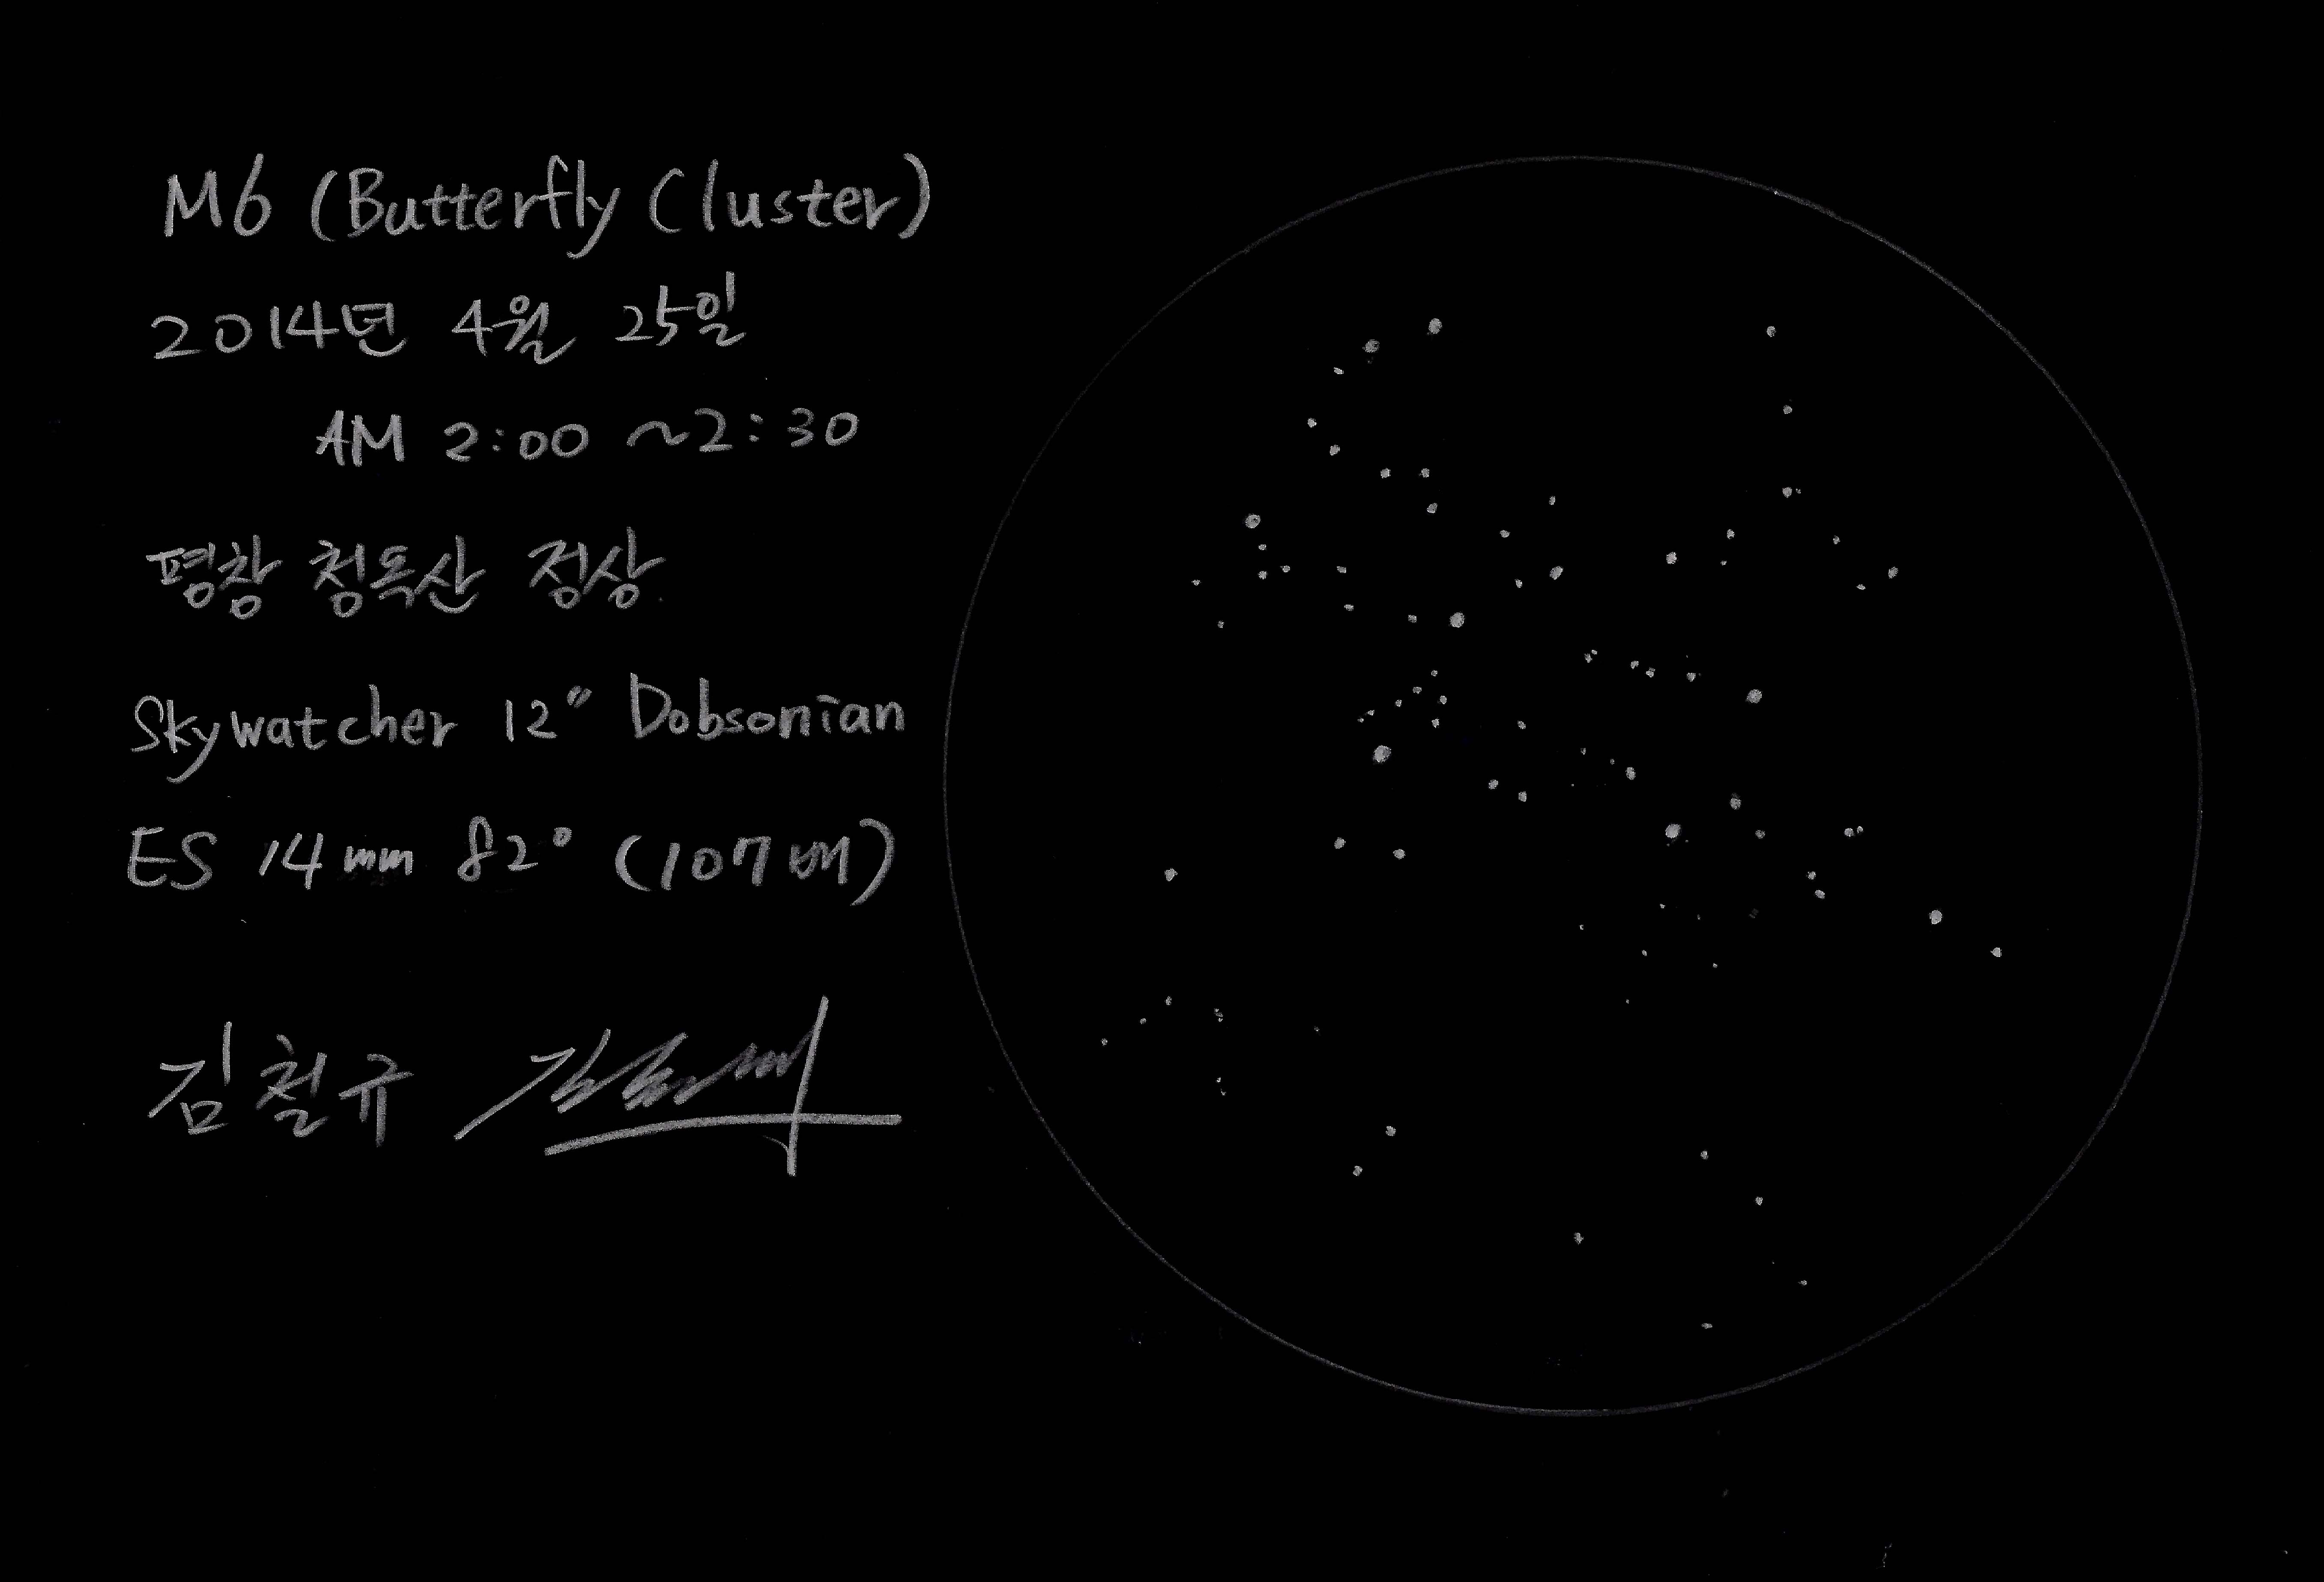 M6 (Butterfly Cluster)
2014년 4월 25일
AM 2:00 ~2:30
평창 청옥산 정상
Skywatcher 12" Dobsonian
ES 14mm 82° (107배)
김철규